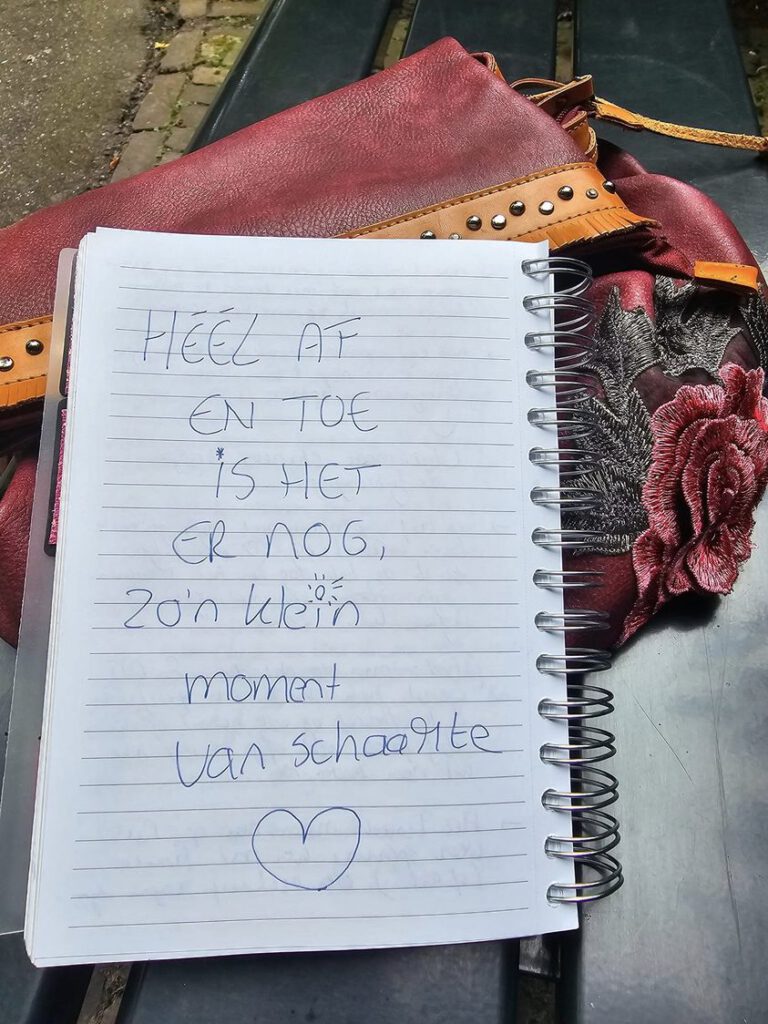 HÉÉL AF
EN TOE
iS HET
ER NOG,
zo'n klein
moment
van schaarste